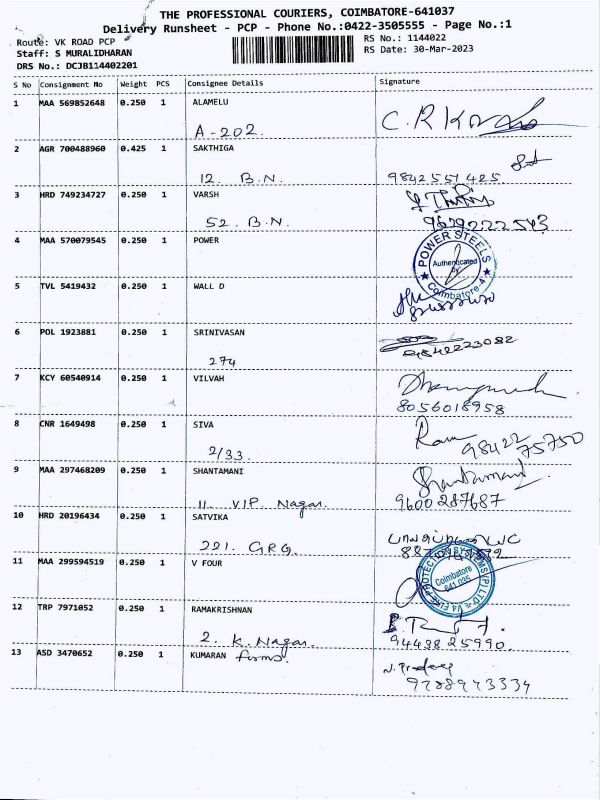 THE PROFESSIONAL COURIERS, COIMBATORE-641037
Delivery Runsheet - PCP - Phone No.:0422-3505555 - Page No.:1
Route: VK ROAD PCP
RS No.: 1144022
Staff: S MURALIDHARAN
RS Date: 30-Mar-2023
DRS No.: DCJB114402201
S No Consignment No Weight PCS Consignee Details Signature
1 MAA 569852648 0.250 1 ALAMELU
A-202. C.R
2 AGR 700488960 0.425 1 SAKTHIGA
12. B.N. 9842551425
3 HRD 749234727 0.250 1 VARSH
52. B.N. 9629222543
4 MAA 570079545 0.250 1 POWER
POWER STEELS Authenticated by Coimbatore-4
5 TVL 5419432 0.250 1 WALL D
6 POL 1923881 0.250 1 SRINIVASAN
274 9842223082
7 KCY 60540914 0.250 1 VILVAH
8056018958
8 CNR 1649498 0.250 1 SIVA
2/33. Ram 98422 75750
9 MAA 297468209 0.250 1 SHANTAMANI Shantamani
11. VIP. Nagar 9600287687
10 HRD 20196434 0.250 1 SATVIKA
221. GRG.
11 MAA 299594519 0.250 1 V FOUR
V4 FIRE PROTECTION SYSTEMS (P) LTD Coimbatore 641 035
12 TRP 7971052 0.250 1 RAMAKRISHNAN
2. K. Nagar. 9443825990.
13 ASD 3470652 0.250 1 KUMARAN firms. N. Pradeep
9788973334